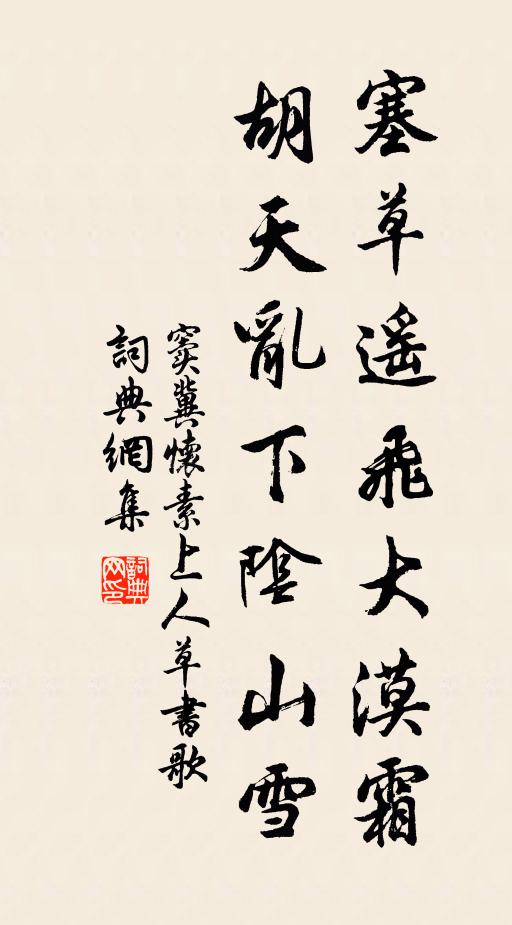 塞草遥飛大漠霜
胡天亂下陰山雪
窦冀懷素上人草書歌
詞典網集
詞典网印